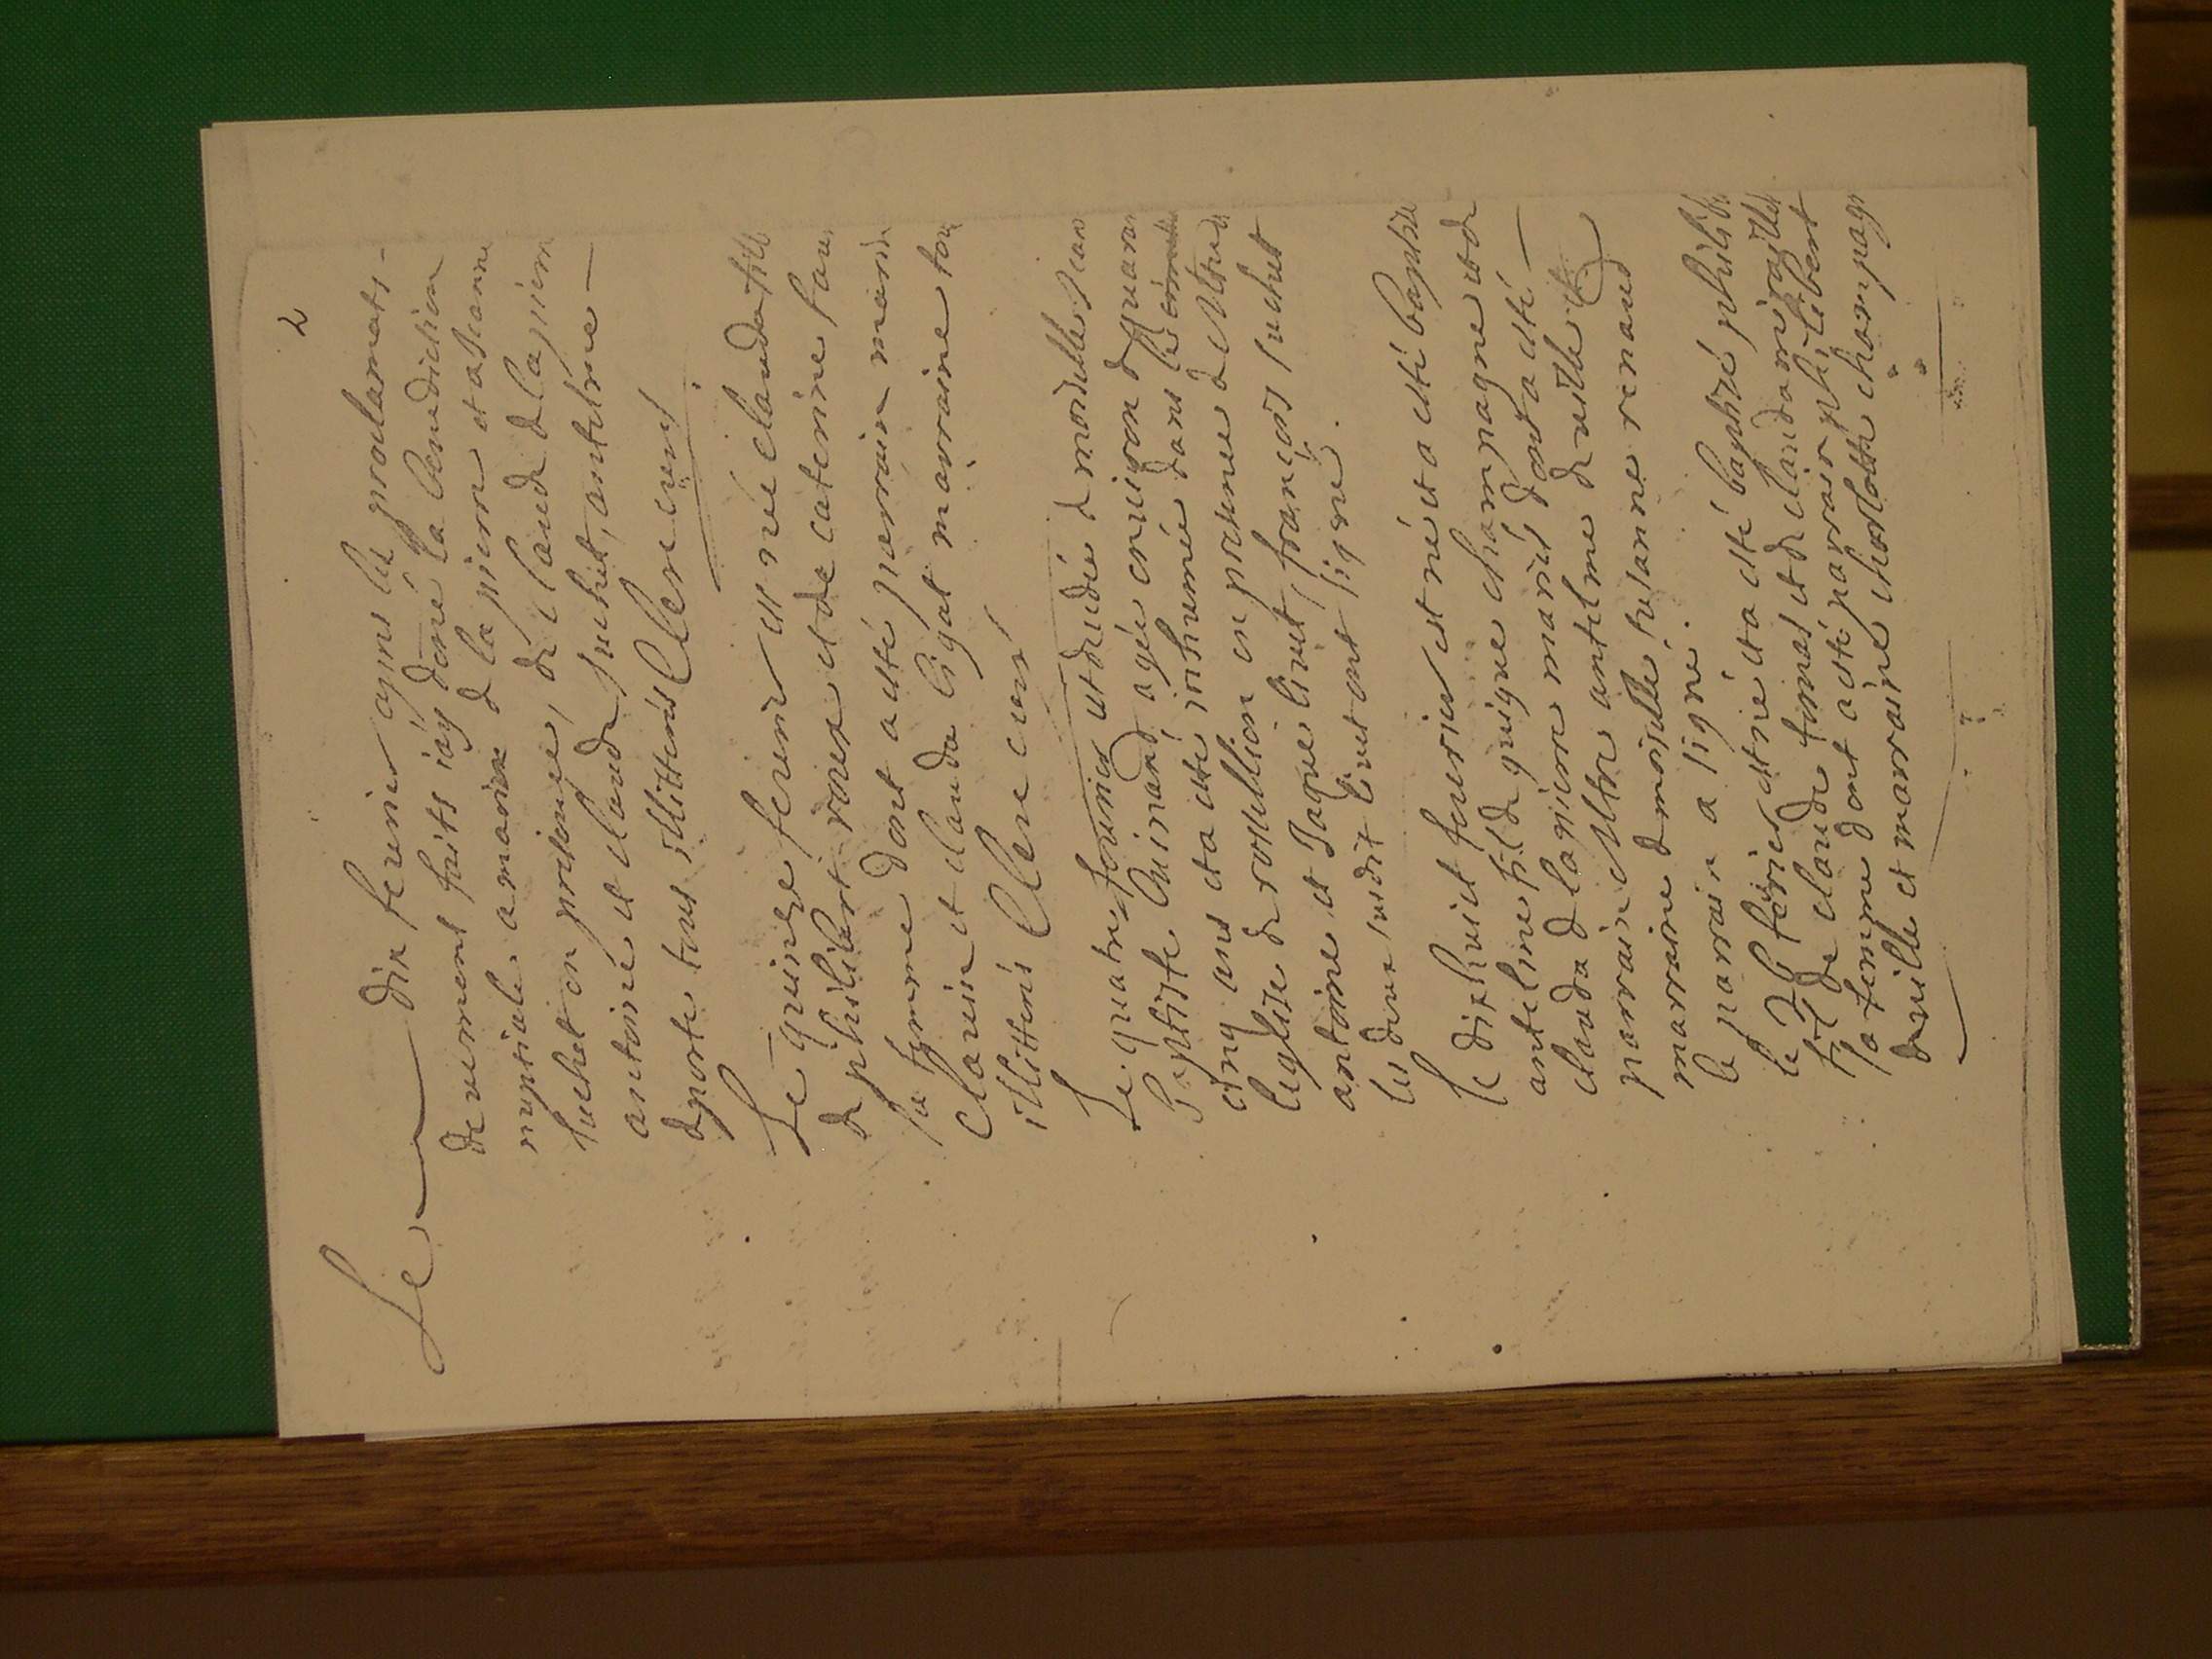 2
Le dix fevrier apres les proclamats-
deuement faits iay doné la benediction
nuptiale a marin de la pierre et a Jeanne
suchet en presence, de claude de la pierre
antoine et claude suchet, antelme
deporte tous illitterés Clere curé
Le quinze fevrier est née clauda fille
de philibert roux et de caterine
sa femme dont a esté parrain
Claurin et clauda ligat marraine
illitterés Clere curé
Le quatre fevrier est decedée damoiselle Jean
Baptiste Guinand agée environ de quaran
cinq ans et a esté inhumée dans le
leglise de rossillion en presence de
antoine et Jaque livet françois suchet
les deux susdit livet ont signé.
le dix huict fevrier est né et a esté baptise
antelme fils de guigue champagne et de
clauda de la pierre mariés dont a esté
parrain antelme de ville et
marraine demoiselle susanne renaud
le parrain a signé.
le 26 fevrier est né et a esté baptisé philib
fils de claude fornas et de clauda
sa femme dont a esté parrain philibert
deville et marraine champag